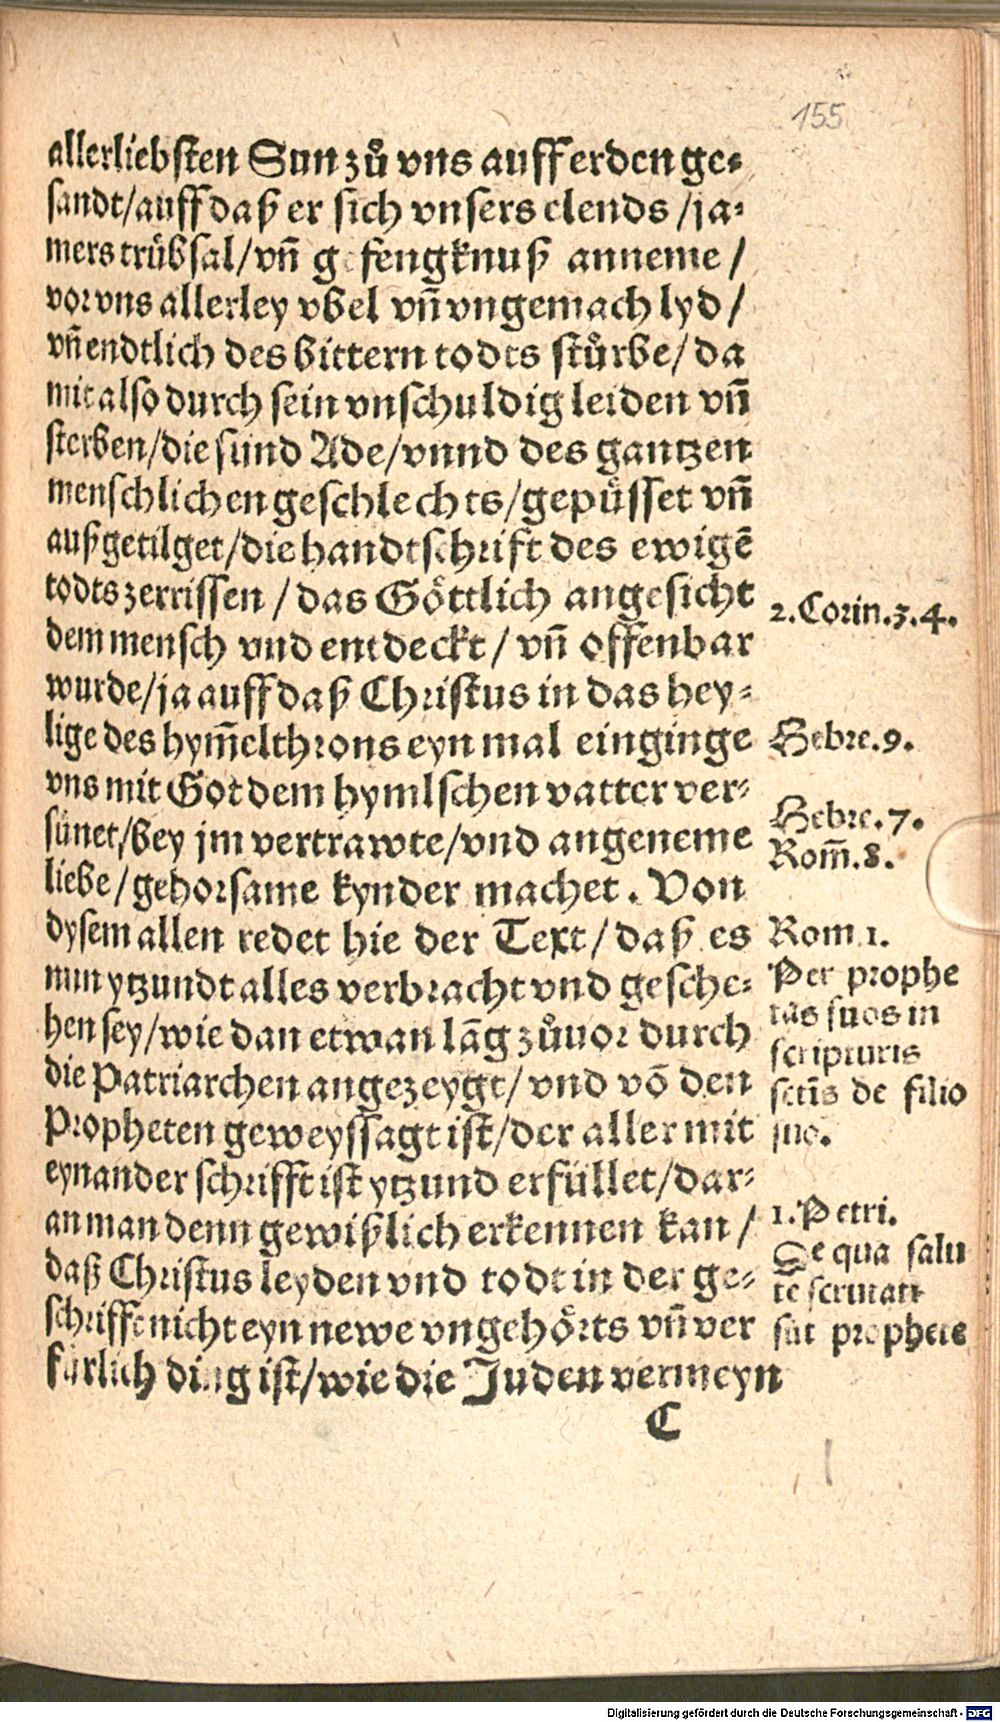 155
allerliebsten Sun zů vns auff erden ge-
sandt/auff daß er sich vnsers elends /ja-
mers trübsal/vn̄ gefengknuß anneme /
vor vns allerley vbel vn̄ vngemach lyd /
vn̄ endtlich des bittern todts stůrbe/ da
mit also durch sein vnschuldig leiden vn̄
sterben/die sünd Ade/vnnd des gantzen
menschlichen geschlechts/gepůsset vn̄
außgetilget/die handtschrift des ewigē
todts zerrissen / das Göttlich angesicht
dem mensch vnd entdeckt / vn̄ offenbar
wurde/ja auff daß Christus in das hey-
lige des hym̄elthrons eyn mal eingienge
vns mit Got dem hymlschen vatter ver-
sünet/bey jm vertrawte/vnd angeneme
liebe/gehorsame kynder machet. Von
dysem allen redet hie der Text/daß es
nun ytzundt alles verbracht vnd gesche-
hen sey/wie dan etwan lāg zůuor durch
die Patriarchen angezeygt/ vnd vō den
Propheten geweyssagt ist/der aller mit
eynander schrifft ist ytzund erfüllet/dar-
an man denn gewißlich erkennen kan /
daß Christus leyden vnd todt in der ge-
schrifft nicht eyn newe vngehörts vn̄ ver
fürlich ding ist/wie die Juden vermeyn
C
2. Corin.3.4.
Hebre.9.
Hebre.7.
Rom̄.8.
Rom 1.
Per prophe
tas suos in
scripturis
sctīs de filio
suo.
1. Petri.
De qua salu
te scrutati
sūt prophete
Digitalisierung gefördert durch die Deutsche Forschungsgemeinschaft - DFG